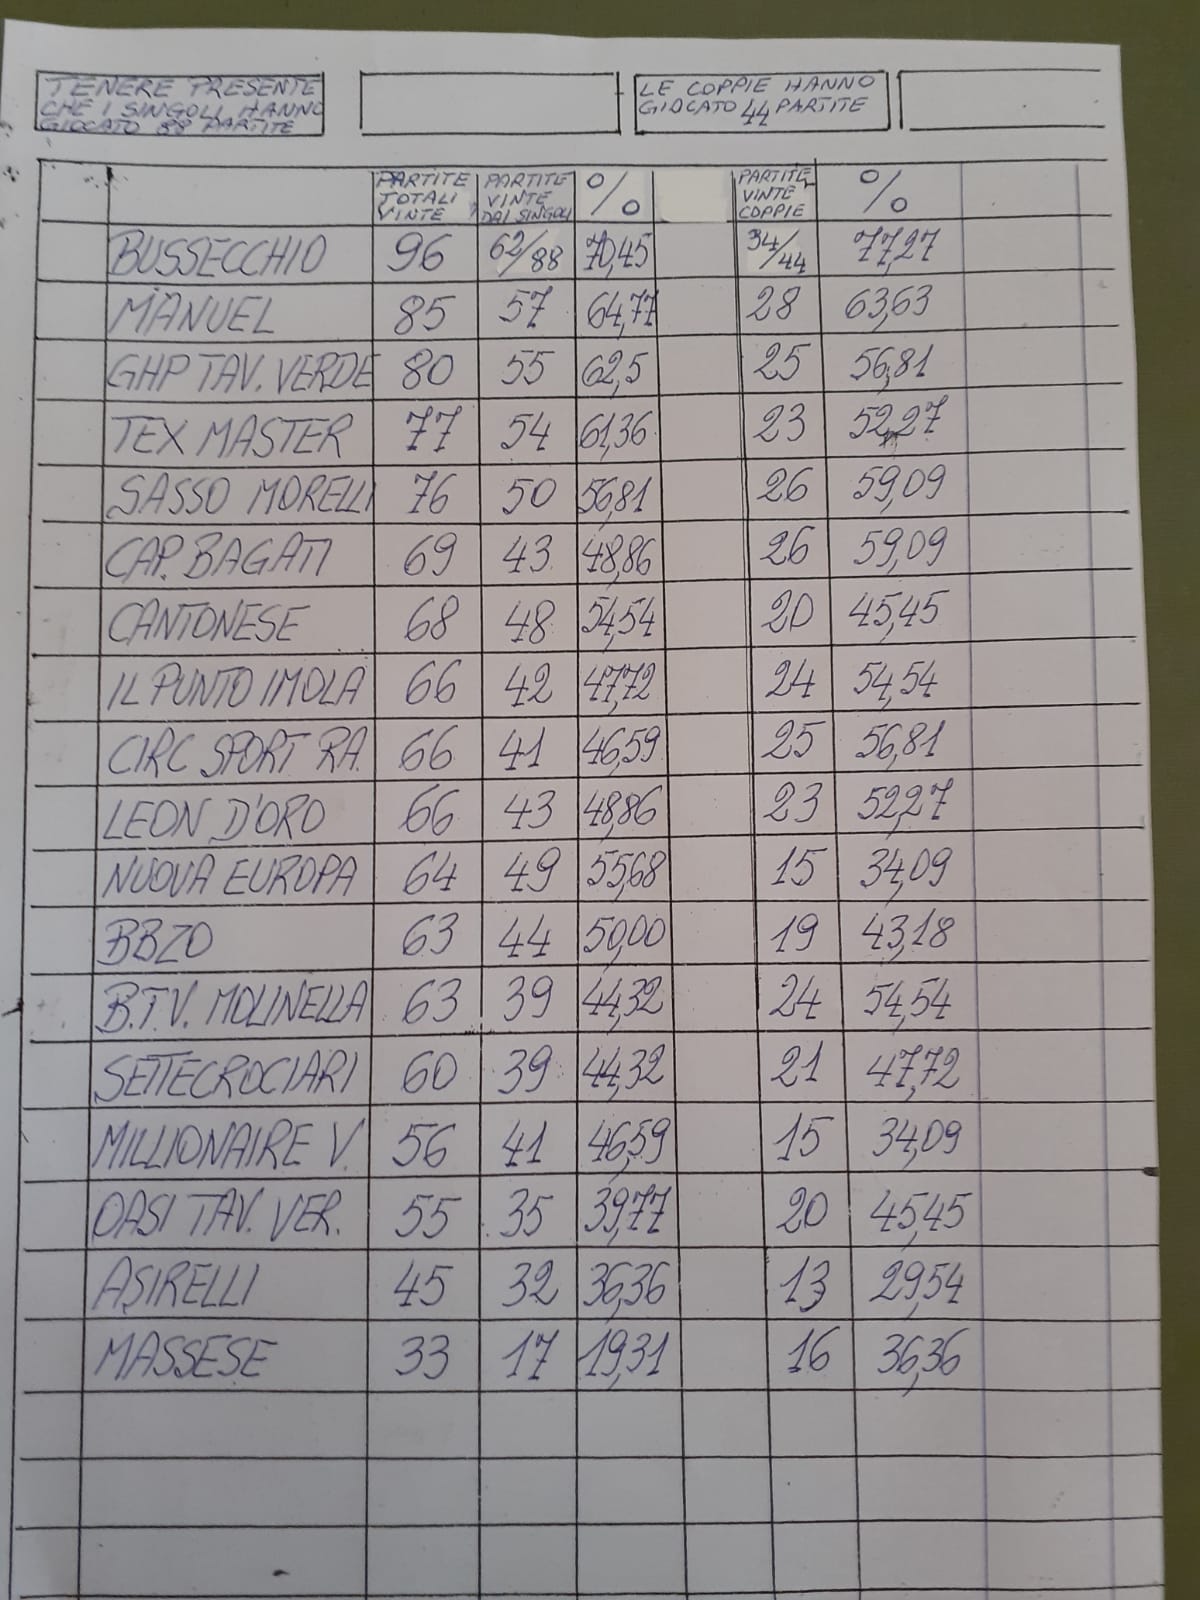 TENERE PRESENTE
CHE I SINGOLI HANNO
GIOCATO 88 PARTITE
LE COPPIE HANNO
GIOCATO 44 PARTITE
PARTITE TOTALI VINTE PARTITE VINTE DAI SINGOLI % PARTITE VINTE COPPIE %
BUSSECCHIO 96 62/88 70,45 34/44 77,27
MANUEL 85 57 64,77 28 63,63
GHP TAV. VERDE 80 55 62,5 25 56,81
TEX MASTER 77 54 61,36 23 52,27
SASSO MORELLI 76 50 56,81 26 59,09
CAP. BAGATI 69 43 48,86 26 59,09
CANTONESE 68 48 54,54 20 45,45
IL PUNTO IMOLA 66 42 47,72 24 54,54
CIRC SPORT RA. 66 41 46,59 25 56,81
LEON D'ORO 66 43 48,86 23 52,27
NUOVA EUROPA 64 49 55,68 15 34,09
BBZO 63 44 50,00 19 43,18
B.T.V. MOLINELLA 63 39 44,32 24 54,54
SETTECROCIARI 60 39 44,32 21 47,72
MILLIONAIRE V. 56 41 46,59 15 34,09
OASI TAV. VER. 55 35 39,77 20 45,45
ASIRELLI 45 32 36,36 13 29,54
MASSESE 33 17 19,31 16 36,36